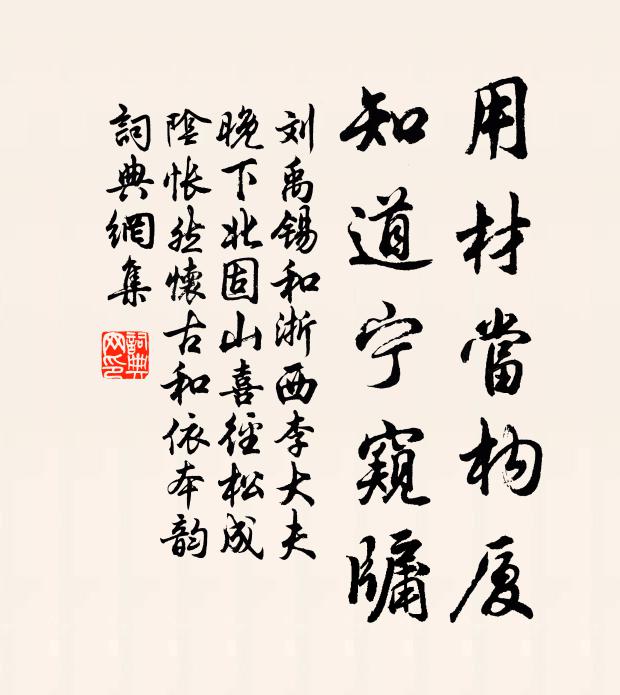 用材當构厦
知道宁窥牖
刘禹锡和浙西李大夫
晚下北固山喜徑松成
陰悵然懷古和依本韵
詞典網集
詞典网印